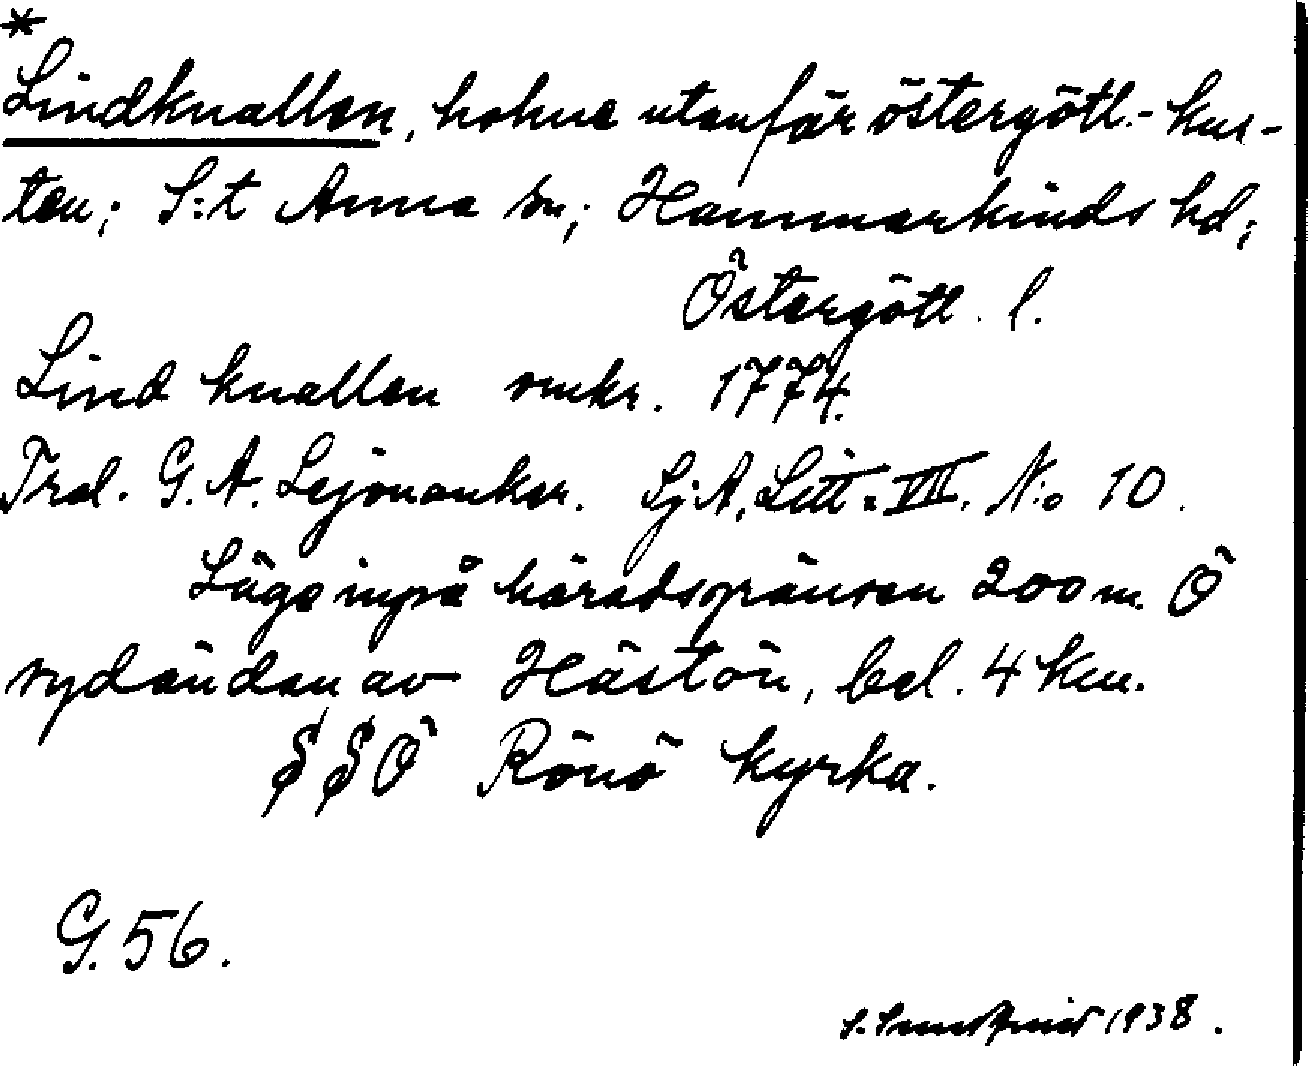 *
Lindknallen, holme utanför östergötl.-kus-
ten; S:t Anna sn; Hammarkinds hd;
Östergötl. l.
Lind knallen omkr. 1774.
Trol. G. A. Lejonanker. Sj.A. Litt. VII. N:o 10.
Läge inpå häradsgränsen 200 m. Ö
sydänden av Hästön, bel. 4 km.
SSÖ Rönö kyrka.
G. 56.
S. 1938.